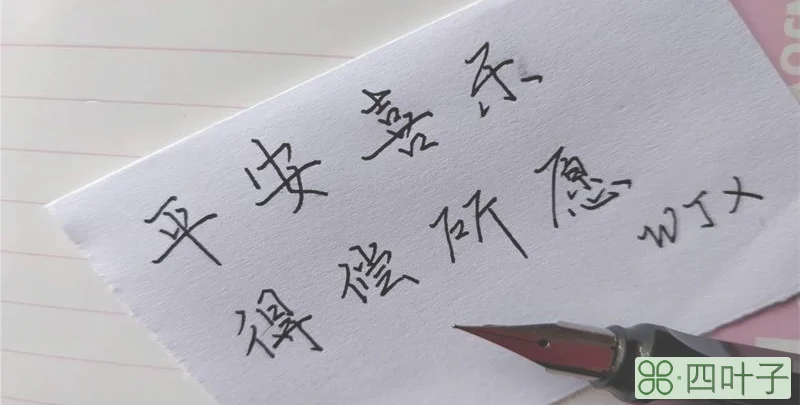 平安喜乐
得偿所愿
WJX
四叶子